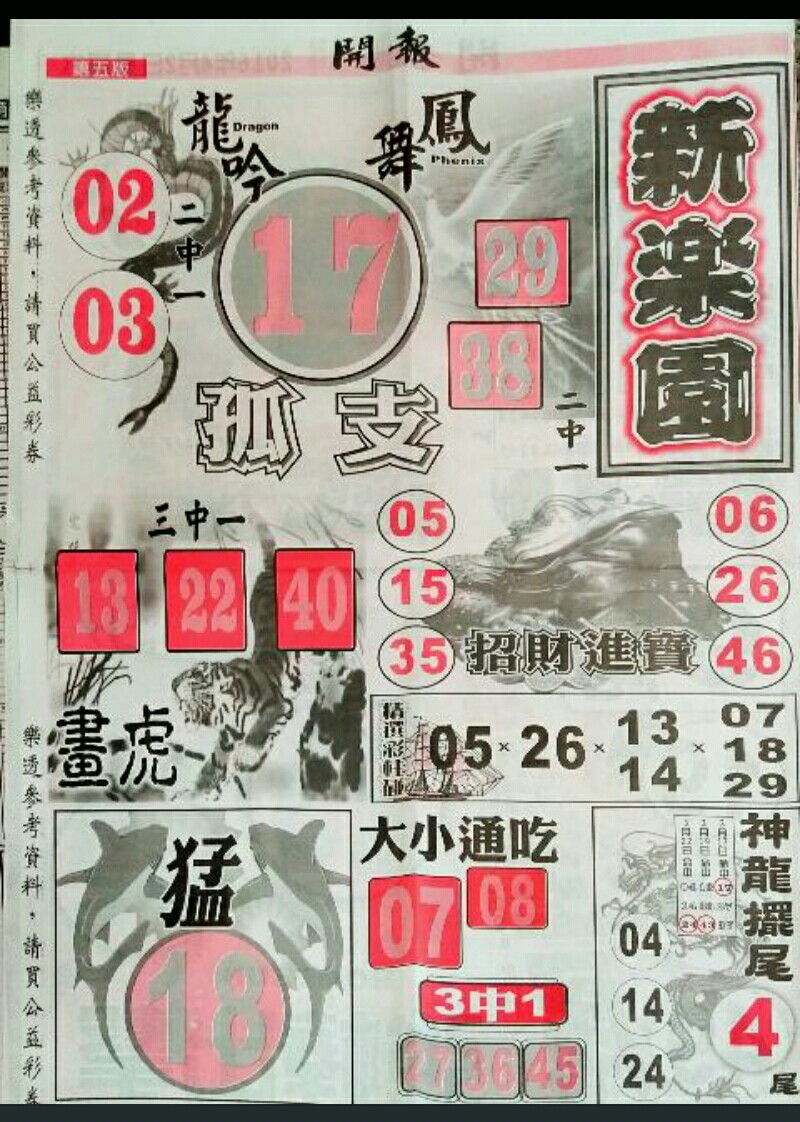 開報
第五版
樂透參考資料，請買公益彩券
龍吟
Dragon
鳳舞
Phenix
新楽園
02
03
二中一
17
孤支
29
38
二中一
三中一
13 22 40
畫虎
05
15
35
06
26
46
招財進寶
精選彩柱碰
05×26×13 14×07 18 29
樂透參考資料，請買公益彩券
猛
18
大小通吃
07 08
3中1
27 36 45
神龍擺尾
04
14
24
4
尾